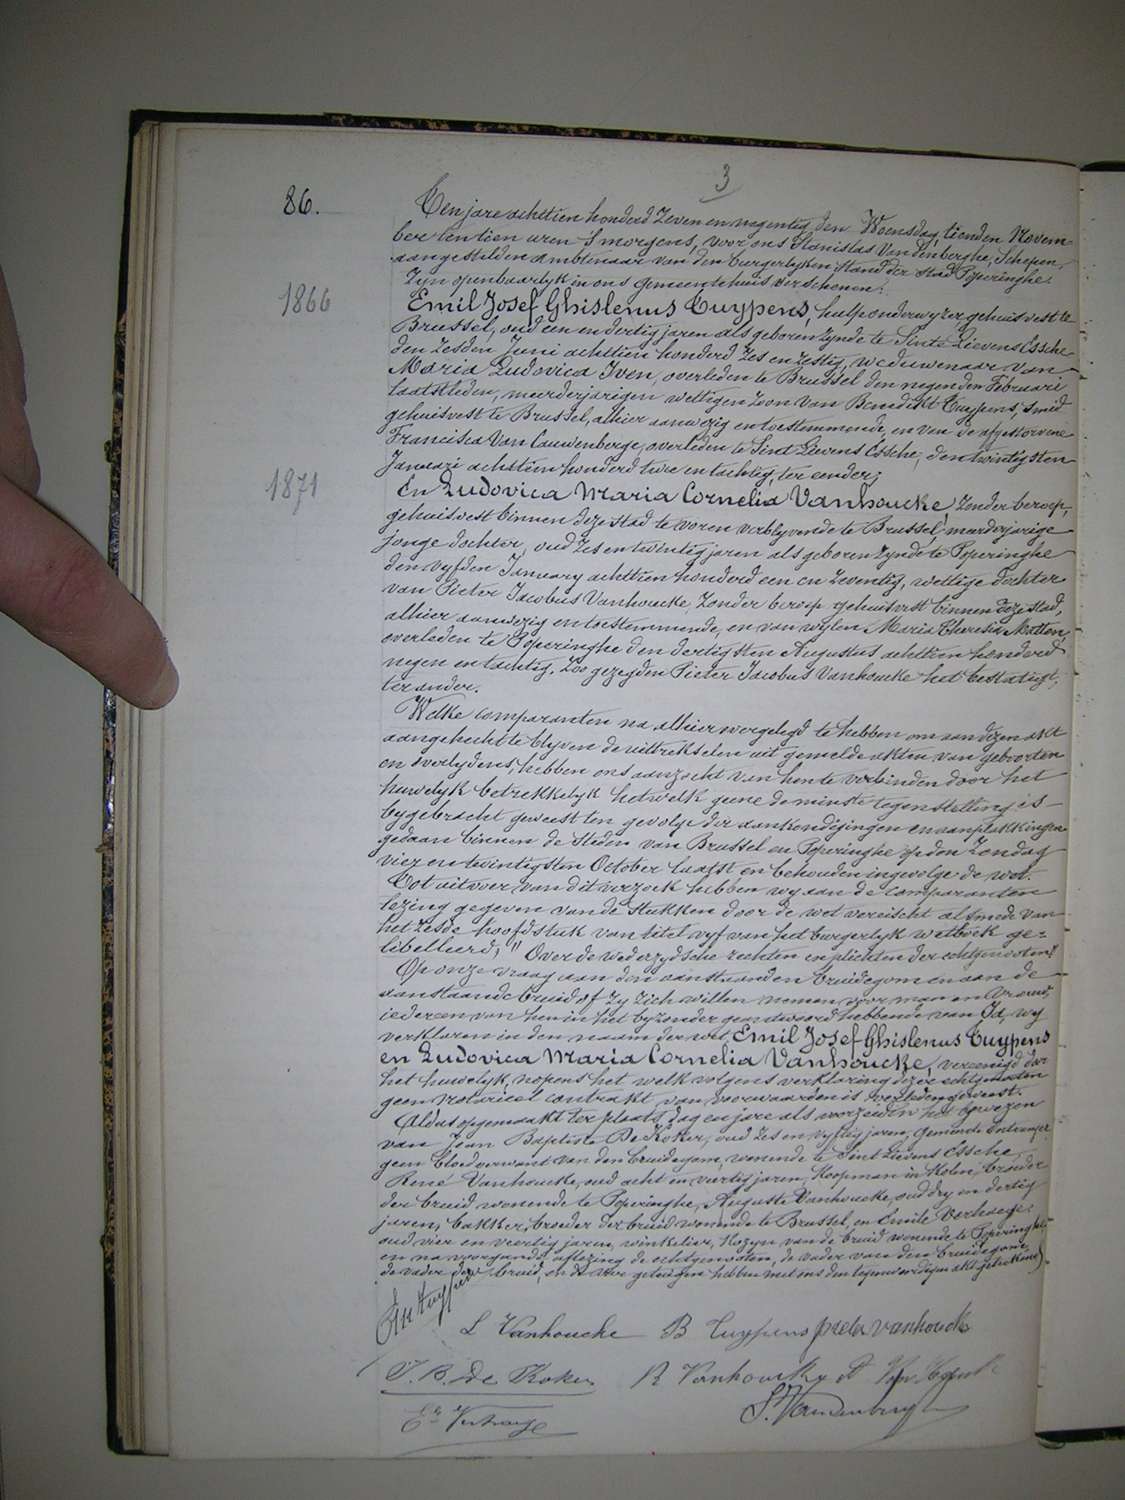 3
86.
Ten jare achttien honderd Zeven en negentig, den Woensdag, tienden Novem-
ber ten tien uren 's morgens, voor ons Stanislas Vandenberghe, Schepen,
aangestelden ambtenaar van den burgerlyken Stand der stad Poperinghe,
Zyn openbaarlyk in ons gemeentehuis verschenen:
1866
Emil Josef Ghislenus Cuypens, hulponderwyzer gehuisvest te
Brussel, oud een en dertig jaren als geboren zynde te Sint Lievens Essche
den Zesden Juni achttien honderd Zes en Zestig, weduwenaar van
Maria Ludovica Iven, overleden te Brussel den negenden Februari
laatstleden, meerderjarigen wettigen zoon van Benedikt Cuypens, smid
gehuisvest te Brussel, alhier aanwezig en toestemmende, en van de afgestorvene
Francisca Van Cauwenberge, overleden te Sint Lievens Essche, den twintigsten
Januari achttien honderd twee en tachtig, ter eender;
1871
En Ludovica Maria Cornelia Vanhoucke, Zonder beroep,
gehuisvest binnen deze stad te voren verblyvende te Brussel, meerderjarige
jonge dochter, oud Zes en twintig jaren als geboren zynde te Poperinghe
den vyfden January achttien honderd een en Zeventig, wettige dochter
van Pieter Jacobus Vanhoucke, Zonder beroep gehuisvest binnen deze stad,
alhier aanwezig en toestemmende, en van wylen Maria Theresia Matton,
overleden te Poperinghe den dertigsten Augustus achttien honderd
negen en tachtig, Zoo gezegden Pieter Jacobus Vanhoucke het bestatigt,
ter ander.
Welke comparanten na alhier vorgelegd te hebben om aan dezen akt
aangehecht te blyven de uittrekselen uit gemelde akten van geboorten
en overlydens, hebben ons aanzocht van hen te verbinden door het
huwelyk betrekkelyk hetwelk geene de minste tegenstelling is
bygebracht geweest ten gevolge der aankondigingen en aanplakkingen
gedaan binnen de steden van Brussel en Poperinghe op den Zondag
vier en twintigsten October laatst en behouden ingevolge de wet.
Tot uitvoer van dit verzoek hebben wy aan de comparanten
lezing gegeven van de stukken door de wet vereischt alsmede van
het Zesde hoofdstuk van titel vyf van het burgerlyk wetboek ge-
libelleerd, "Over de wederzydsche rechten en plichten der echtgenooten."
Op onze vraag aan den aanstaanden bruidegom en aan de
aanstaande bruid of Zy Zich willen nemen voor man en Vrouw,
iedereen van hen in het byzonder geantwoord hebbende van Ja, wy
verklaren in den naam der wet, Emil Josef Ghislenus Cuypens
en Ludovica Maria Cornelia Vanhoucke, vereenigd door
het huwelyk, nopens het welk volgens verklaring dezer echtgenooten
geen notarieel contrakt van voorwaarden is verleden geweest.
Aldus opgemaakt ter plaats, dag en jare als voorzeid in het bywezen
van Jean Baptiste De Koker, oud Zes en vyftig jaren, Gemeente Ontvanger,
geen bloedverwant van den bruidegom, wonende te Sint Lievens Essche,
René Vanhoucke, oud acht en veertig jaren, Koopman in Kolen, broeder
der bruid wonende te Poperinghe, Auguste Vanhoucke, oud dry en dertig
jaren, bakker, broeder der bruid wonende te Brussel, en Emile Verhaege
oud vier en veertig jaren, winkelier, Kozyn van de bruid wonende te Poperinghe
en na voorgaande aflezing de echtgenooten, de vader van den bruidegom,
de vader der bruid, en de vier getuigen hebben met ons den tegenwoordigen akt geteekend
L Vanhoucke B Cuypens pieter vanhoucke
J. B. De Koker R Vanhoucke A
Em Verhaege S. Vandenberghe